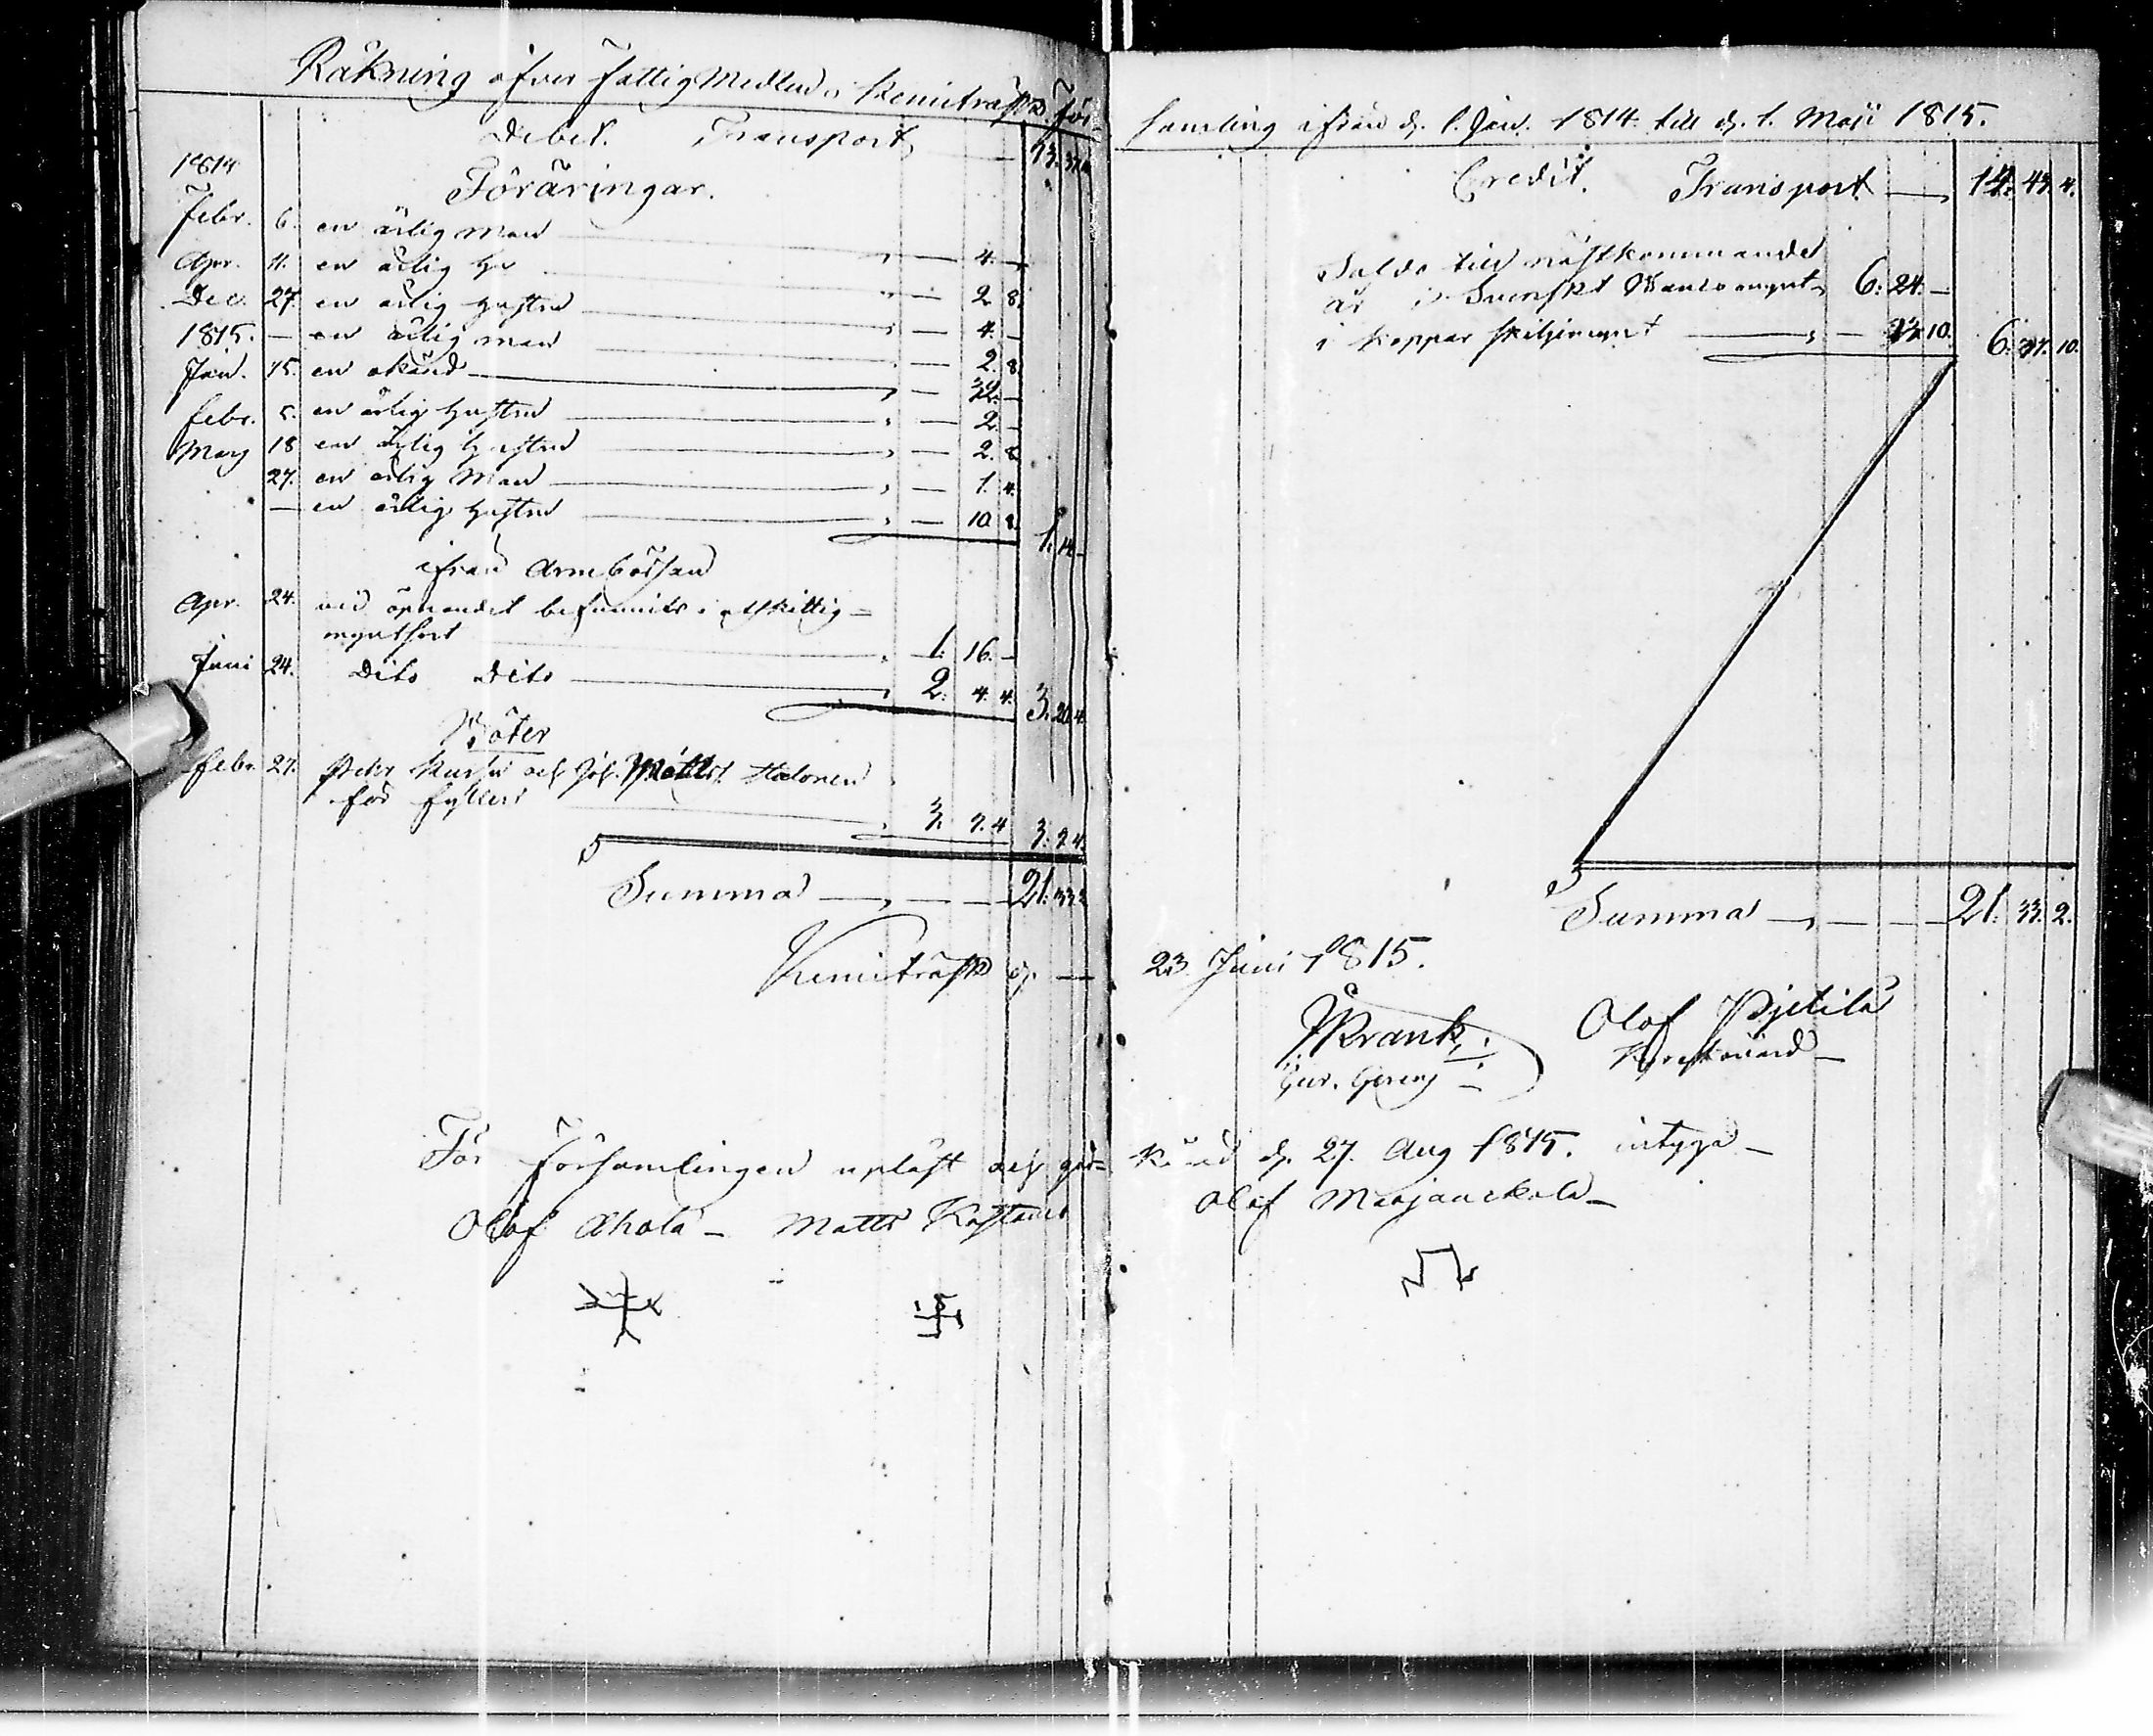 Räkning öfver Fattig Medlen i Kemiträsk För-
Debet. Transport 13. 37.
1814 Föräringar.
Febr. 6. en ärlig man 4. -
Apr. 11. en ärlig 2. 8.
Dec. 27. en ärlig hustru 4. -
1815. - en ärlig man 2. 8.
Jan. 15. en okänd 32. -
Febr. 5. en ärlig hustru 2. -
18 en ärlig hustru 2. 8.
27. en ärlig Man 1. 4.
- en ärlig hustru 10. 8. 1. 14. -
ifrån Armbössan
Apr. 24. vid öpnandet befunnits i
myntsort 1. 16. -
Juni 24. Dito Dito 2. 4. 4. 3. 20. 4.
Böter
Febr. 27. Pehr och Joh. Mattss. Halonen
för fylleri 3. 9. 4 3. 9. 4.
Summa 21. 33. 2
Kemiträsk d. -
För Församlingen upläst och god-
Olof Ahola - Matts
samling ifrån d. 1. Jan. 1814 till d. 1. Maji 1815.
Credit. Transport 14. 43. 4.
Saldo till nästkommande
år i Svenskt Banco mynt 6: 24. -
i koppar skiljemynt 13. 10. 6. 37. 10.
Summa 21. 33. 2.
23 Juni 1815.
Krank Olof Pjetilä
Kyrkovärd -
känd d. 27. Aug 1815. intyga -
Olof Marjanckala -